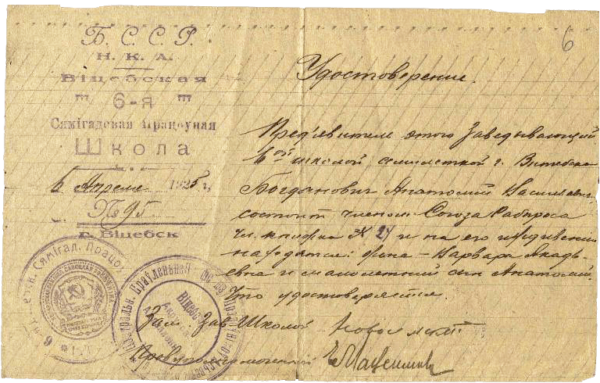 6
Б. С. С. Р.
Н. К. А.
Віцебская
6-я
Сямігадовая Працоуная
Школа
6 Апреля 1925 г.
№ 95
г. Віцебск
Удостоверение.
Пред'явитель этого Заведывающий
6ой школой семилеткой г. Витебска
Богданович Анатолий Васильев.
состоит членом Союза Рабпроса
чл. книжка № 27 и на его иждивении
находятся: жена - Варвара Аркадь-
евна и малолетний сын Анатолий.
Что удостоверяется.
Зам. Зав. Школой